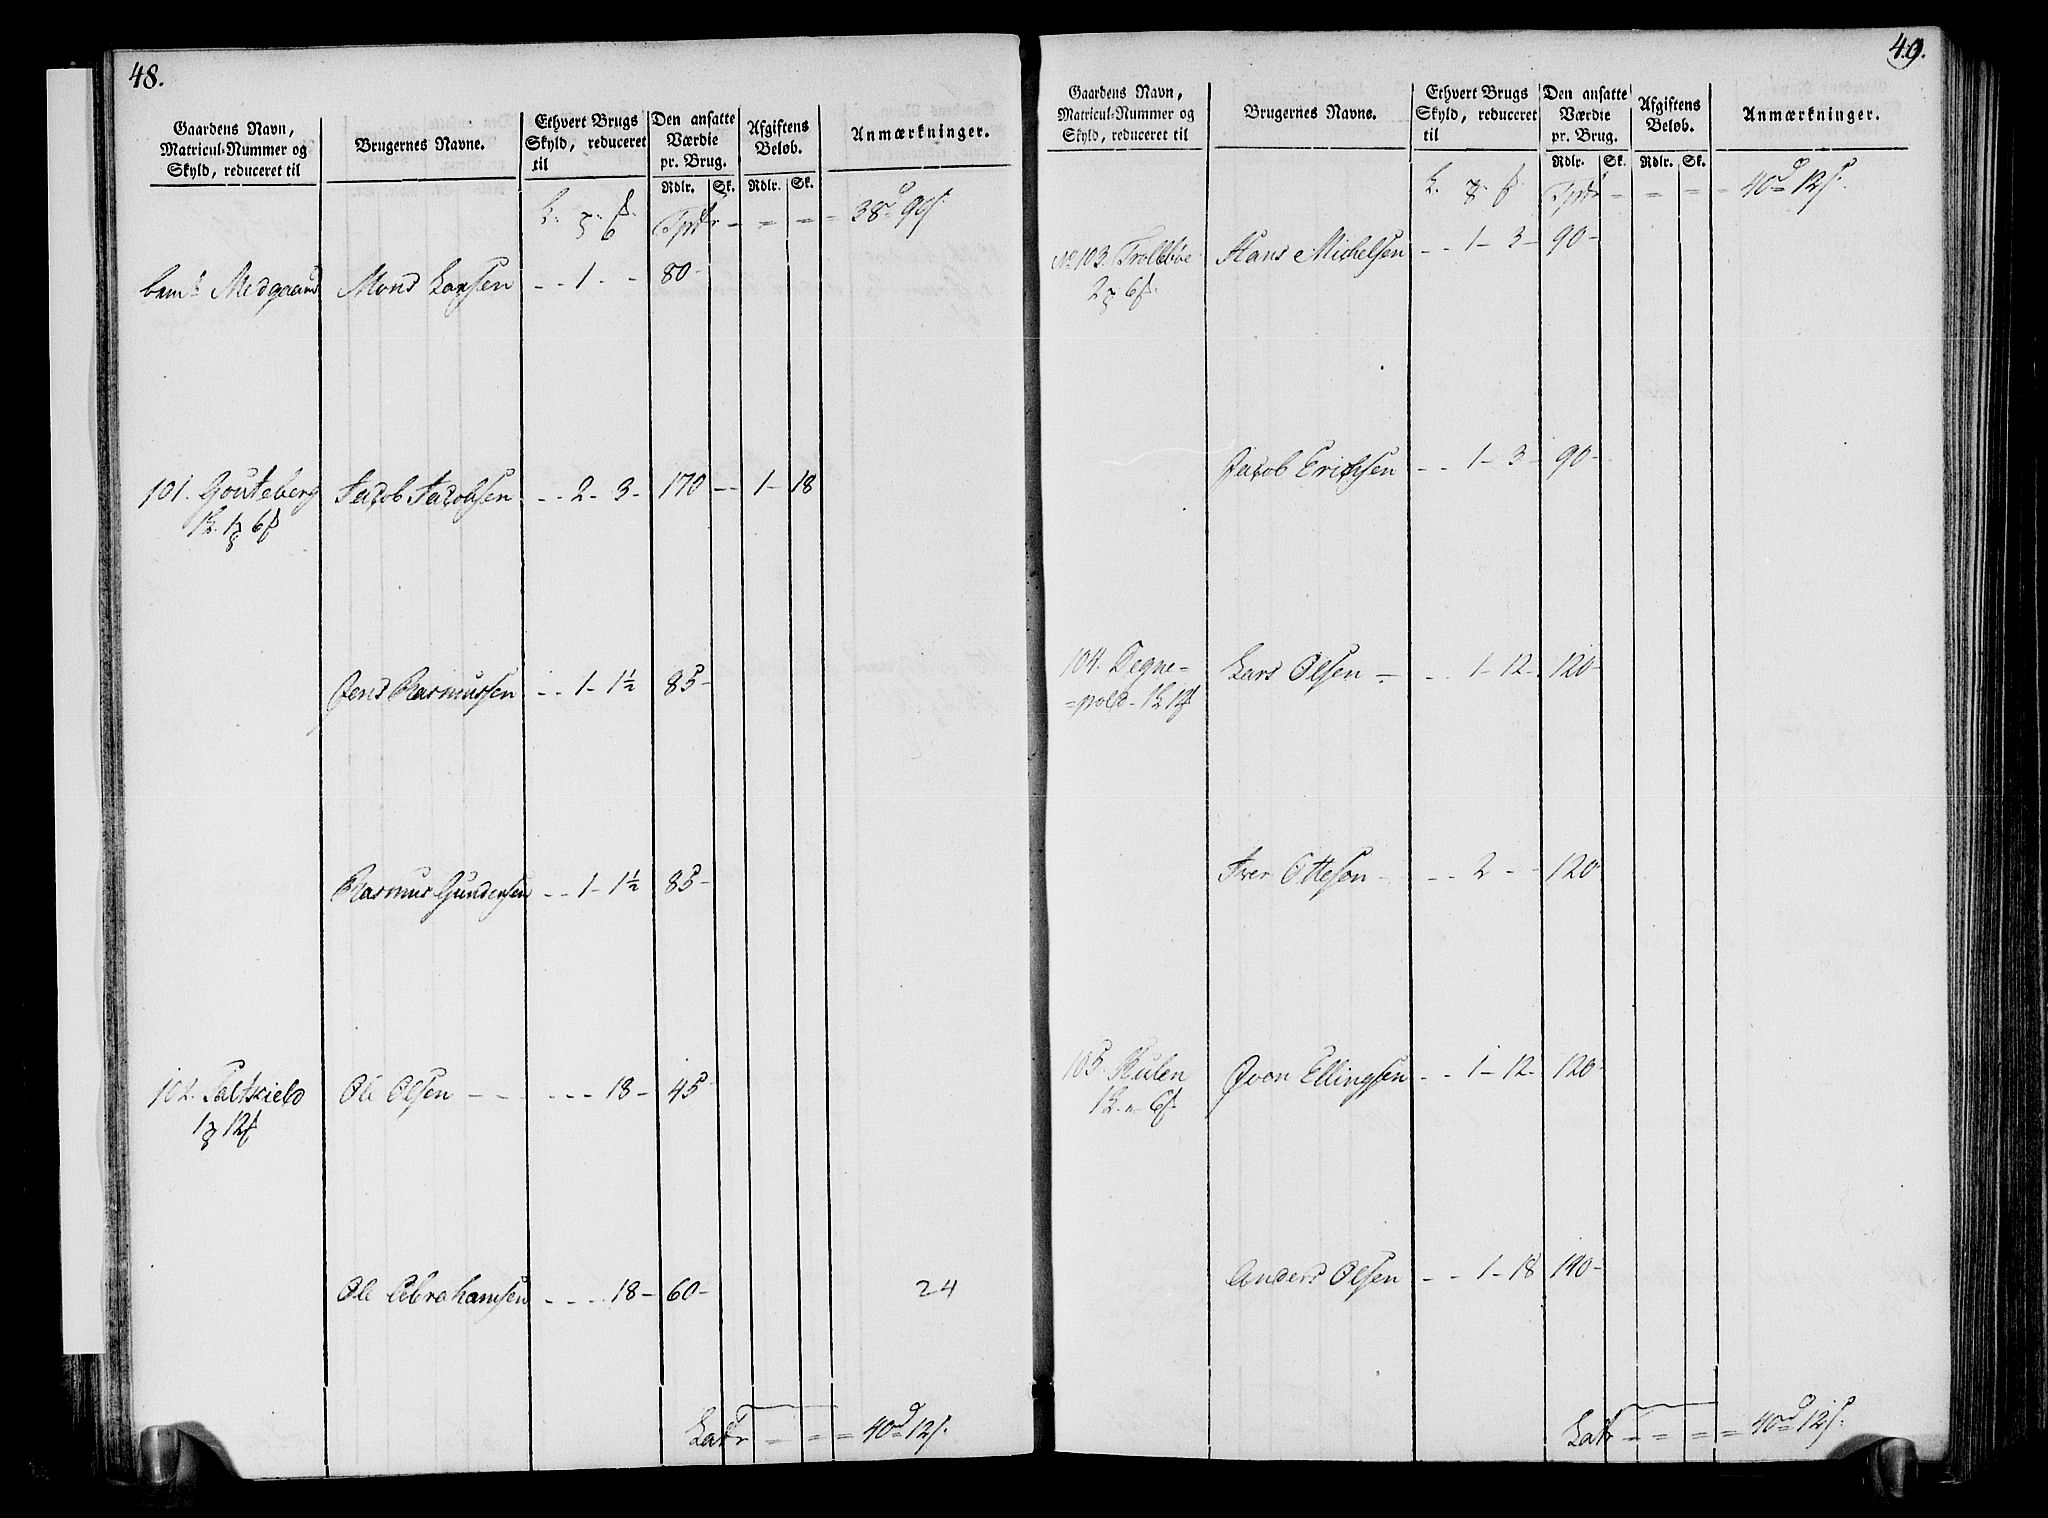 48.
Gaardens Navn, Matricul-Nummer og Skyld, reduceret til
Brugernes Navne.
Ethvert Brugs Skyld, reduceret til
Den ansatte Værdie pr. Brug.
Afgiftens Beløb.
Anmærkninger.
Rdlr. Sk. Rdlr. Sk.
38 90
Medgaard Mons Larsen - - 1 - - 80 -
101. Gouteberg Jacob Jacobsen - - 2 - 3 - 170 - - 1 - 18
Jens Rasmussen - - 1 - 1½ 85 -
Rasmus Gundersen - - 1 - 1½ 85 -
102. Saltskield Ole Olsen - - - - - - 18 - 45 -
Ole Abrahamsen - - - 18 - 60 -
24
Latr 40 12
49.
Gaardens Navn, Matricul-Nummer og Skyld, reduceret til
Brugernes Navne.
Ethvert Brugs Skyld, reduceret til
Den ansatte Værdie pr. Brug.
Afgiftens Beløb.
Anmærkninger.
Rdlr. Sk. Rdlr. Sk.
40 12
No 103. Trolleböe Hans Michelsen - - 1 - 3 - 90 -
Jacob Erichsen - - 1 - 3 - 90 -
104. Degne= Lars Olsen - - - 1 - 12 - 120 -
=pold
Iver Otteson - - - 2 - - 120
105. Hulen Ellingsen - - 1 - 12 - 120 -
Anders Olsen - - 1 - 18 140 -
Latr 40 12